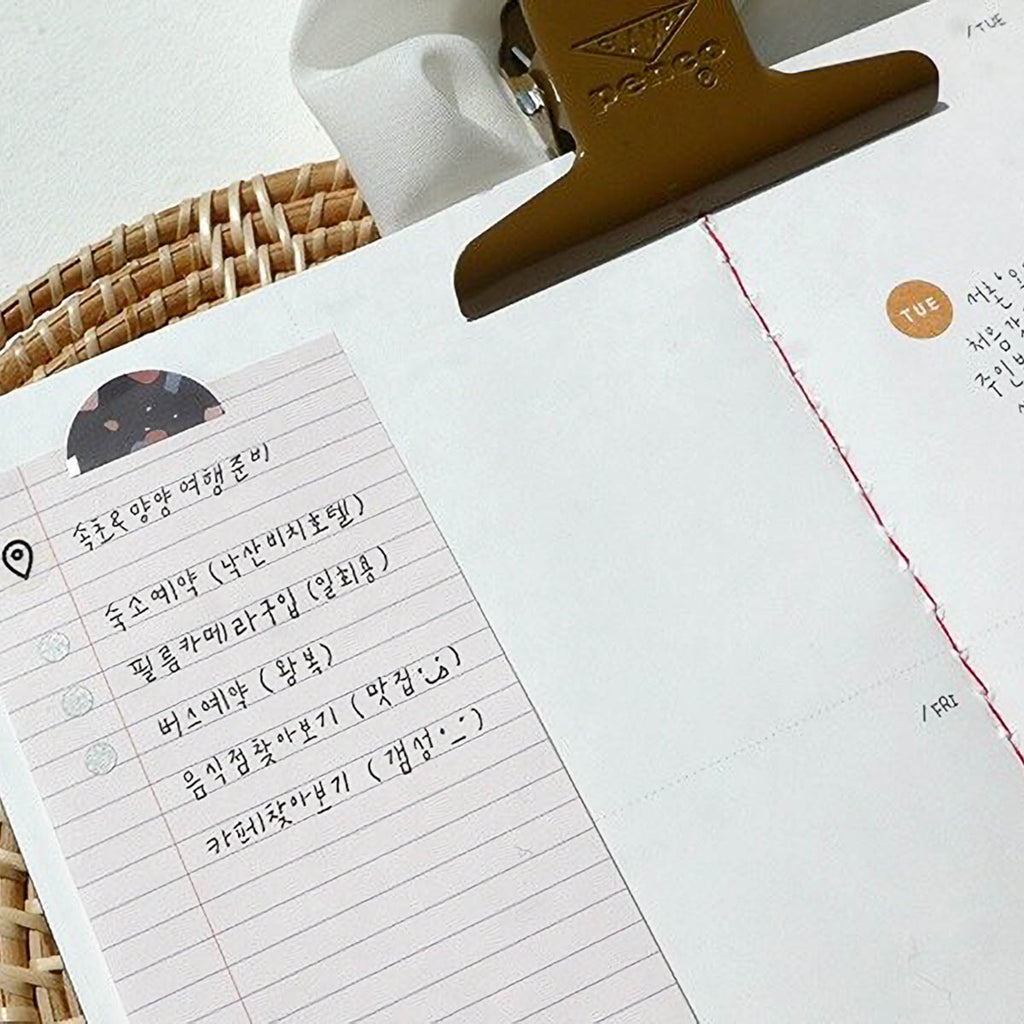 penco
/TUE
속초&양양 여행준비
숙소예약 (낙산비치호텔)
필름카메라구입 (일회용)
버스예약 (왕복)
음식점찾아보기 (맛집)
카페찾아보기 (갬성)
TUE
서촌
처음
주인
/FRI